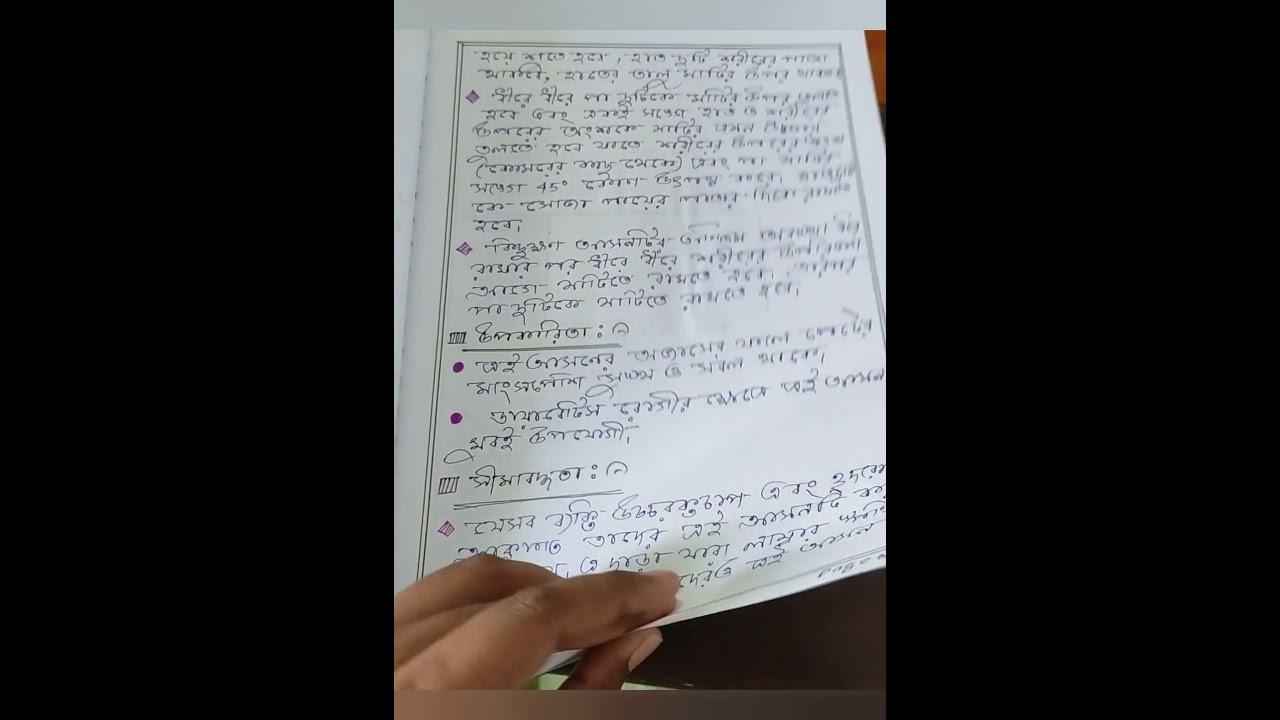 হয়ে শুতে হবে, হাত দুটি শরীরের পাশে
থাকবে, হাতের তালু মাটির উপর থাকবে
ধীরে ধীরে পা দুটিকে মাটির উপর তুলতে
হবে এবং একই সঙ্গে হাত ও শরীরের
উপরের অংশকে মাটির এমন
তুলতে হবে যাতে শরীরের উপরের অংশ
(কোমরের কাছ থেকে) এবং পা মাটির
সঙ্গে 45° কোণ উৎপন্ন করে।
কে সোজা পায়ের পাতার দিকে রাখতে
হবে।
কিছুক্ষণ আসনটির অন্তিম অবস্থায়
রাখার পর ধীরে ধীরে শরীরের উপরের
আগে মাটিতে রাখতে হবে। তারপর
পা দুটিকে মাটিতে রাখতে হবে।
উপকারিতা:
এই আসনের অভ্যাসের ফলে পেটের
মাংসপেশি সুস্থ ও সবল থাকে।
ডায়াবেটিস রোগীর ক্ষেত্রে এই আসন
খুবই উপযোগী।
সীমাবদ্ধতা:
যেসব ব্যক্তি উচ্চরক্তচাপ এবং
তাদের এই আসনটি
এ ছাড়া যারা
দেরও এই আসন
page